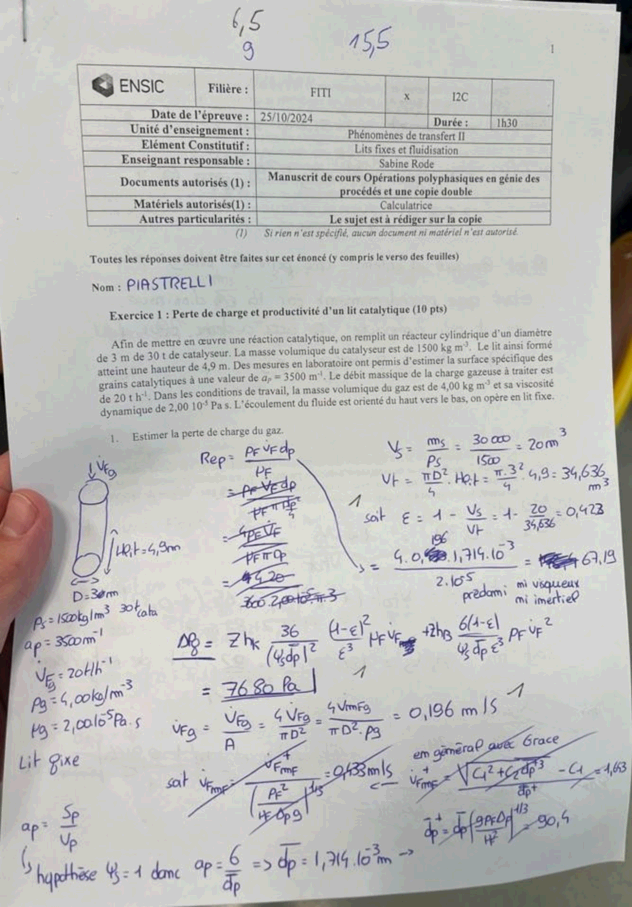 6,5
9
15,5
1
ENSIC
Filière : FITI x I2C
Date de l'épreuve : 25/10/2024 Durée : 1h30
Unité d'enseignement : Phénomènes de transfert II
Elément Constitutif : Lits fixes et fluidisation
Enseignant responsable : Sabine Rode
Documents autorisés (1) : Manuscrit de cours Opérations polyphasiques en génie des
procédés et une copie double
Matériels autorisés(1) : Calculatrice
Autres particularités : Le sujet est à rédiger sur la copie
(1) Si rien n'est spécifié, aucun document ni matériel n'est autorisé.
Toutes les réponses doivent être faites sur cet énoncé (y compris le verso des feuilles)
Nom : PIASTRELLI
Exercice 1 : Perte de charge et productivité d'un lit catalytique (10 pts)
Afin de mettre en œuvre une réaction catalytique, on remplit un réacteur cylindrique d'un diamètre
de 3 m de 30 t de catalyseur. La masse volumique du catalyseur est de 1500 kg m⁻³. Le lit ainsi formé
atteint une hauteur de 4,9 m. Des mesures en laboratoire ont permis d'estimer la surface spécifique des
grains catalytiques à une valeur de aₚ = 3500 m⁻¹. Le débit massique de la charge gazeuse à traiter est
de 20 t h⁻¹. Dans les conditions de travail, la masse volumique du gaz est de 4,00 kg m⁻³ et sa viscosité
dynamique de 2,00 10⁻⁵ Pa s. L'écoulement du fluide est orienté du haut vers le bas, on opère en lit fixe.
1. Estimer la perte de charge du gaz.
V̇Fg
Rep = ρF V̇F dp / μF
Vs = ms / ρs = 30 000 / 1500 = 20 m³
Vt = πD²/4 . HP,t = π.3²/4 . 4,9 = 34,636 m³
1
soit ε = 1 - Vs/Vt = 1 - 20/34,636 = 0,423
HP,t = 4,9m
= 4.0,196.1,714.10⁻³ / 2.10⁻⁵ = 67,19
prédomi mi visqueux
mi inertiel
D = 3m
ρs = 1500kg/m³ 30t cata
ap = 3500m⁻¹
V̇Fg = 20t/h⁻¹
ρg = 4,00kg/m⁻³
μg = 2,00.10⁻⁵ Pa.s
Lit fixe
= 7680 Pa
1
V̇Fg = V̇Fg / A = 4V̇Fg / πD² = 4V̇mFg / πD².ρg = 0,196 m/s
1
en général avec Grace
soit = 0,433m/s
= 1,63
= 90,4
ap = Sp / Vp
↳ hypothèse ψs = 1 donc ap = 6/dp => dp = 1,714.10⁻³m →